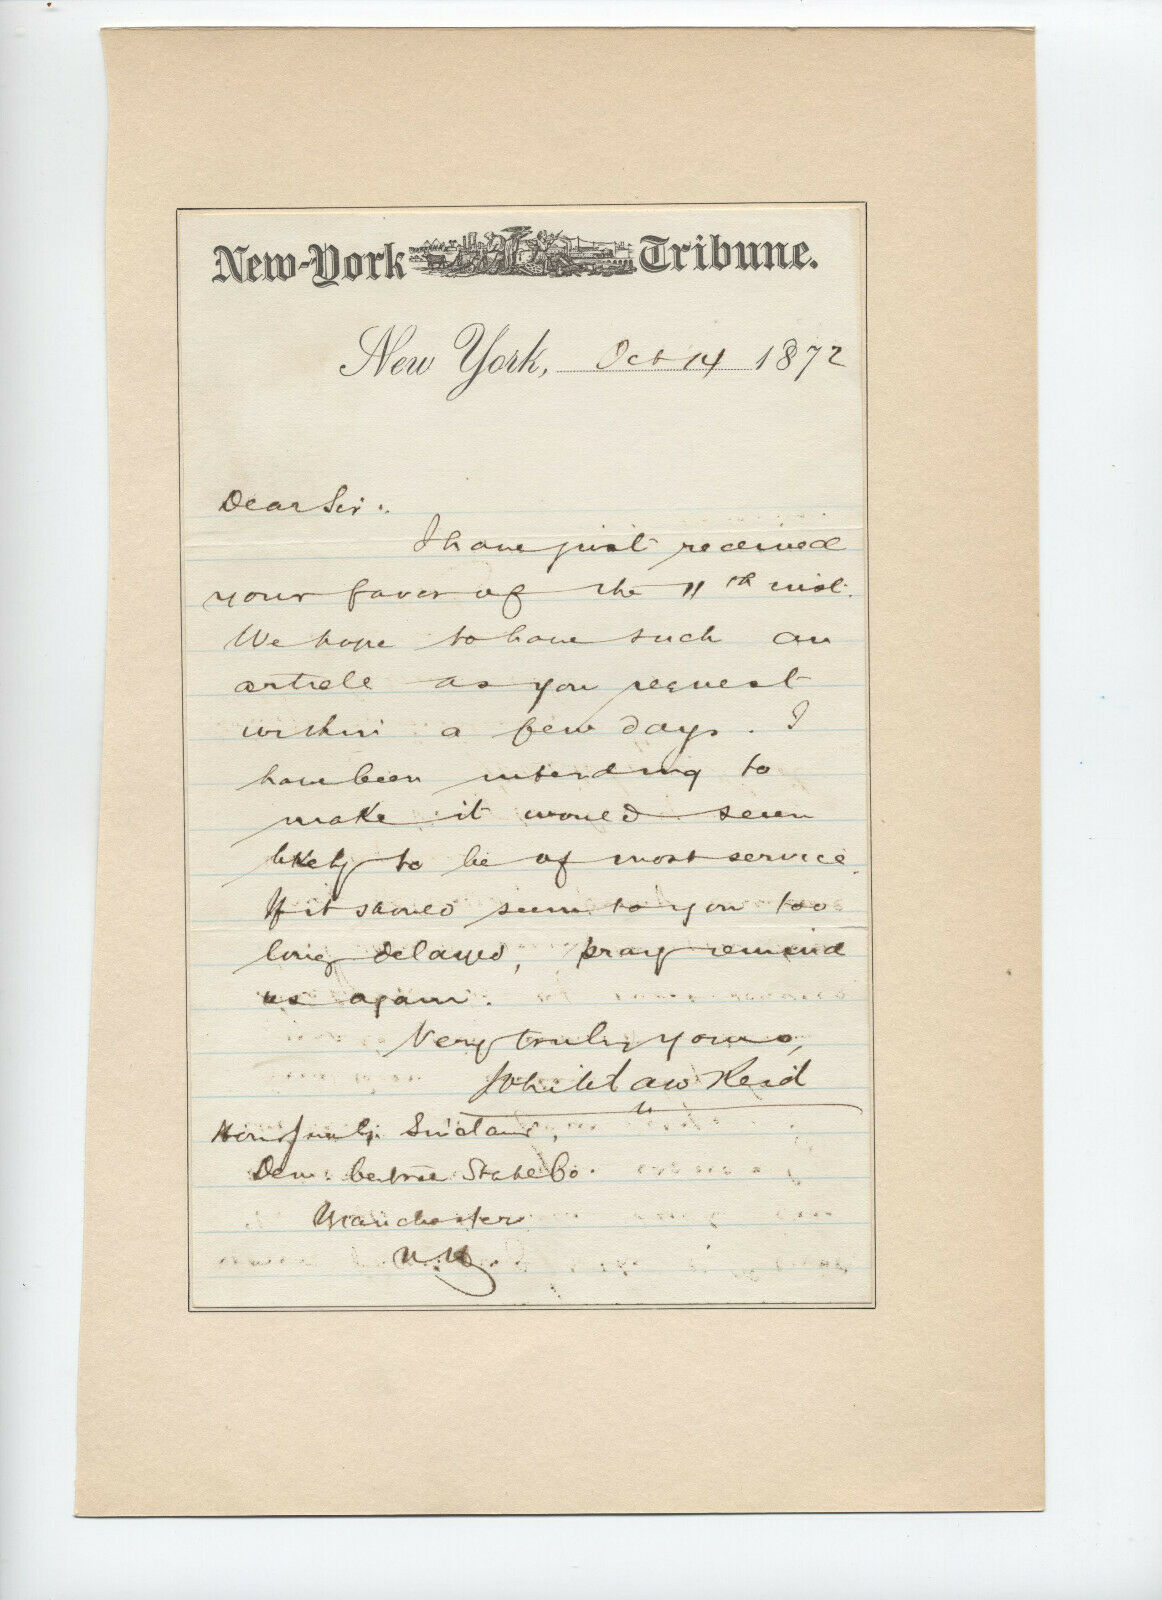 New-York Tribune.
New York, Oct 14 1872
Dear Sir:
I have just received
your favor of the 11th inst.
We hope to have such an
article as you request
within a few days. I
have been intending to
make it would seem
likely to be of most service.
If it should seem to you too
long delayed, pray remind
us again.
Very truly yours,
Whitelaw Reid
Hon. Sinclair,
Dem. State Co.
Manchester
N.H.